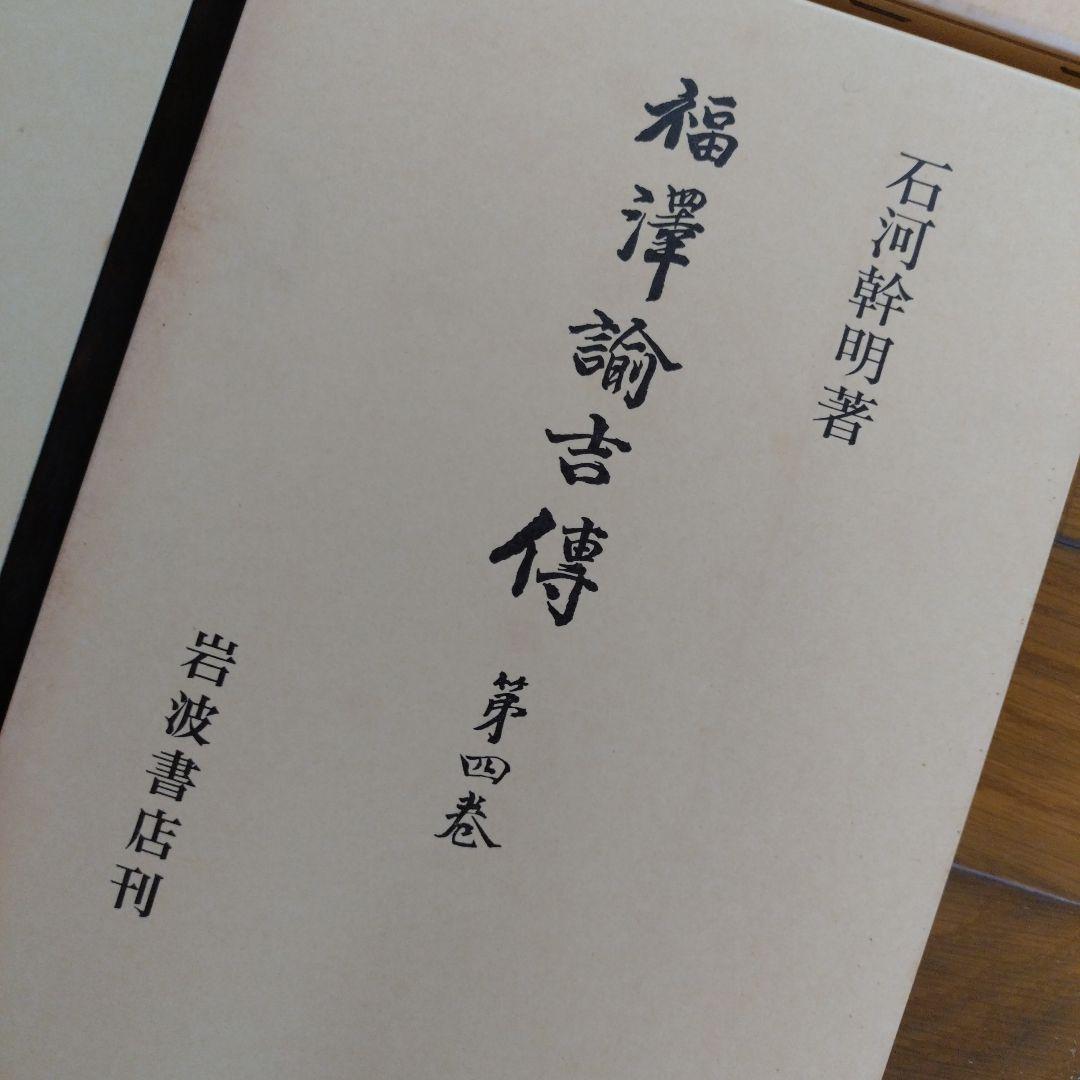 石河幹明著
福澤諭吉傳 第四卷
岩波書店刊